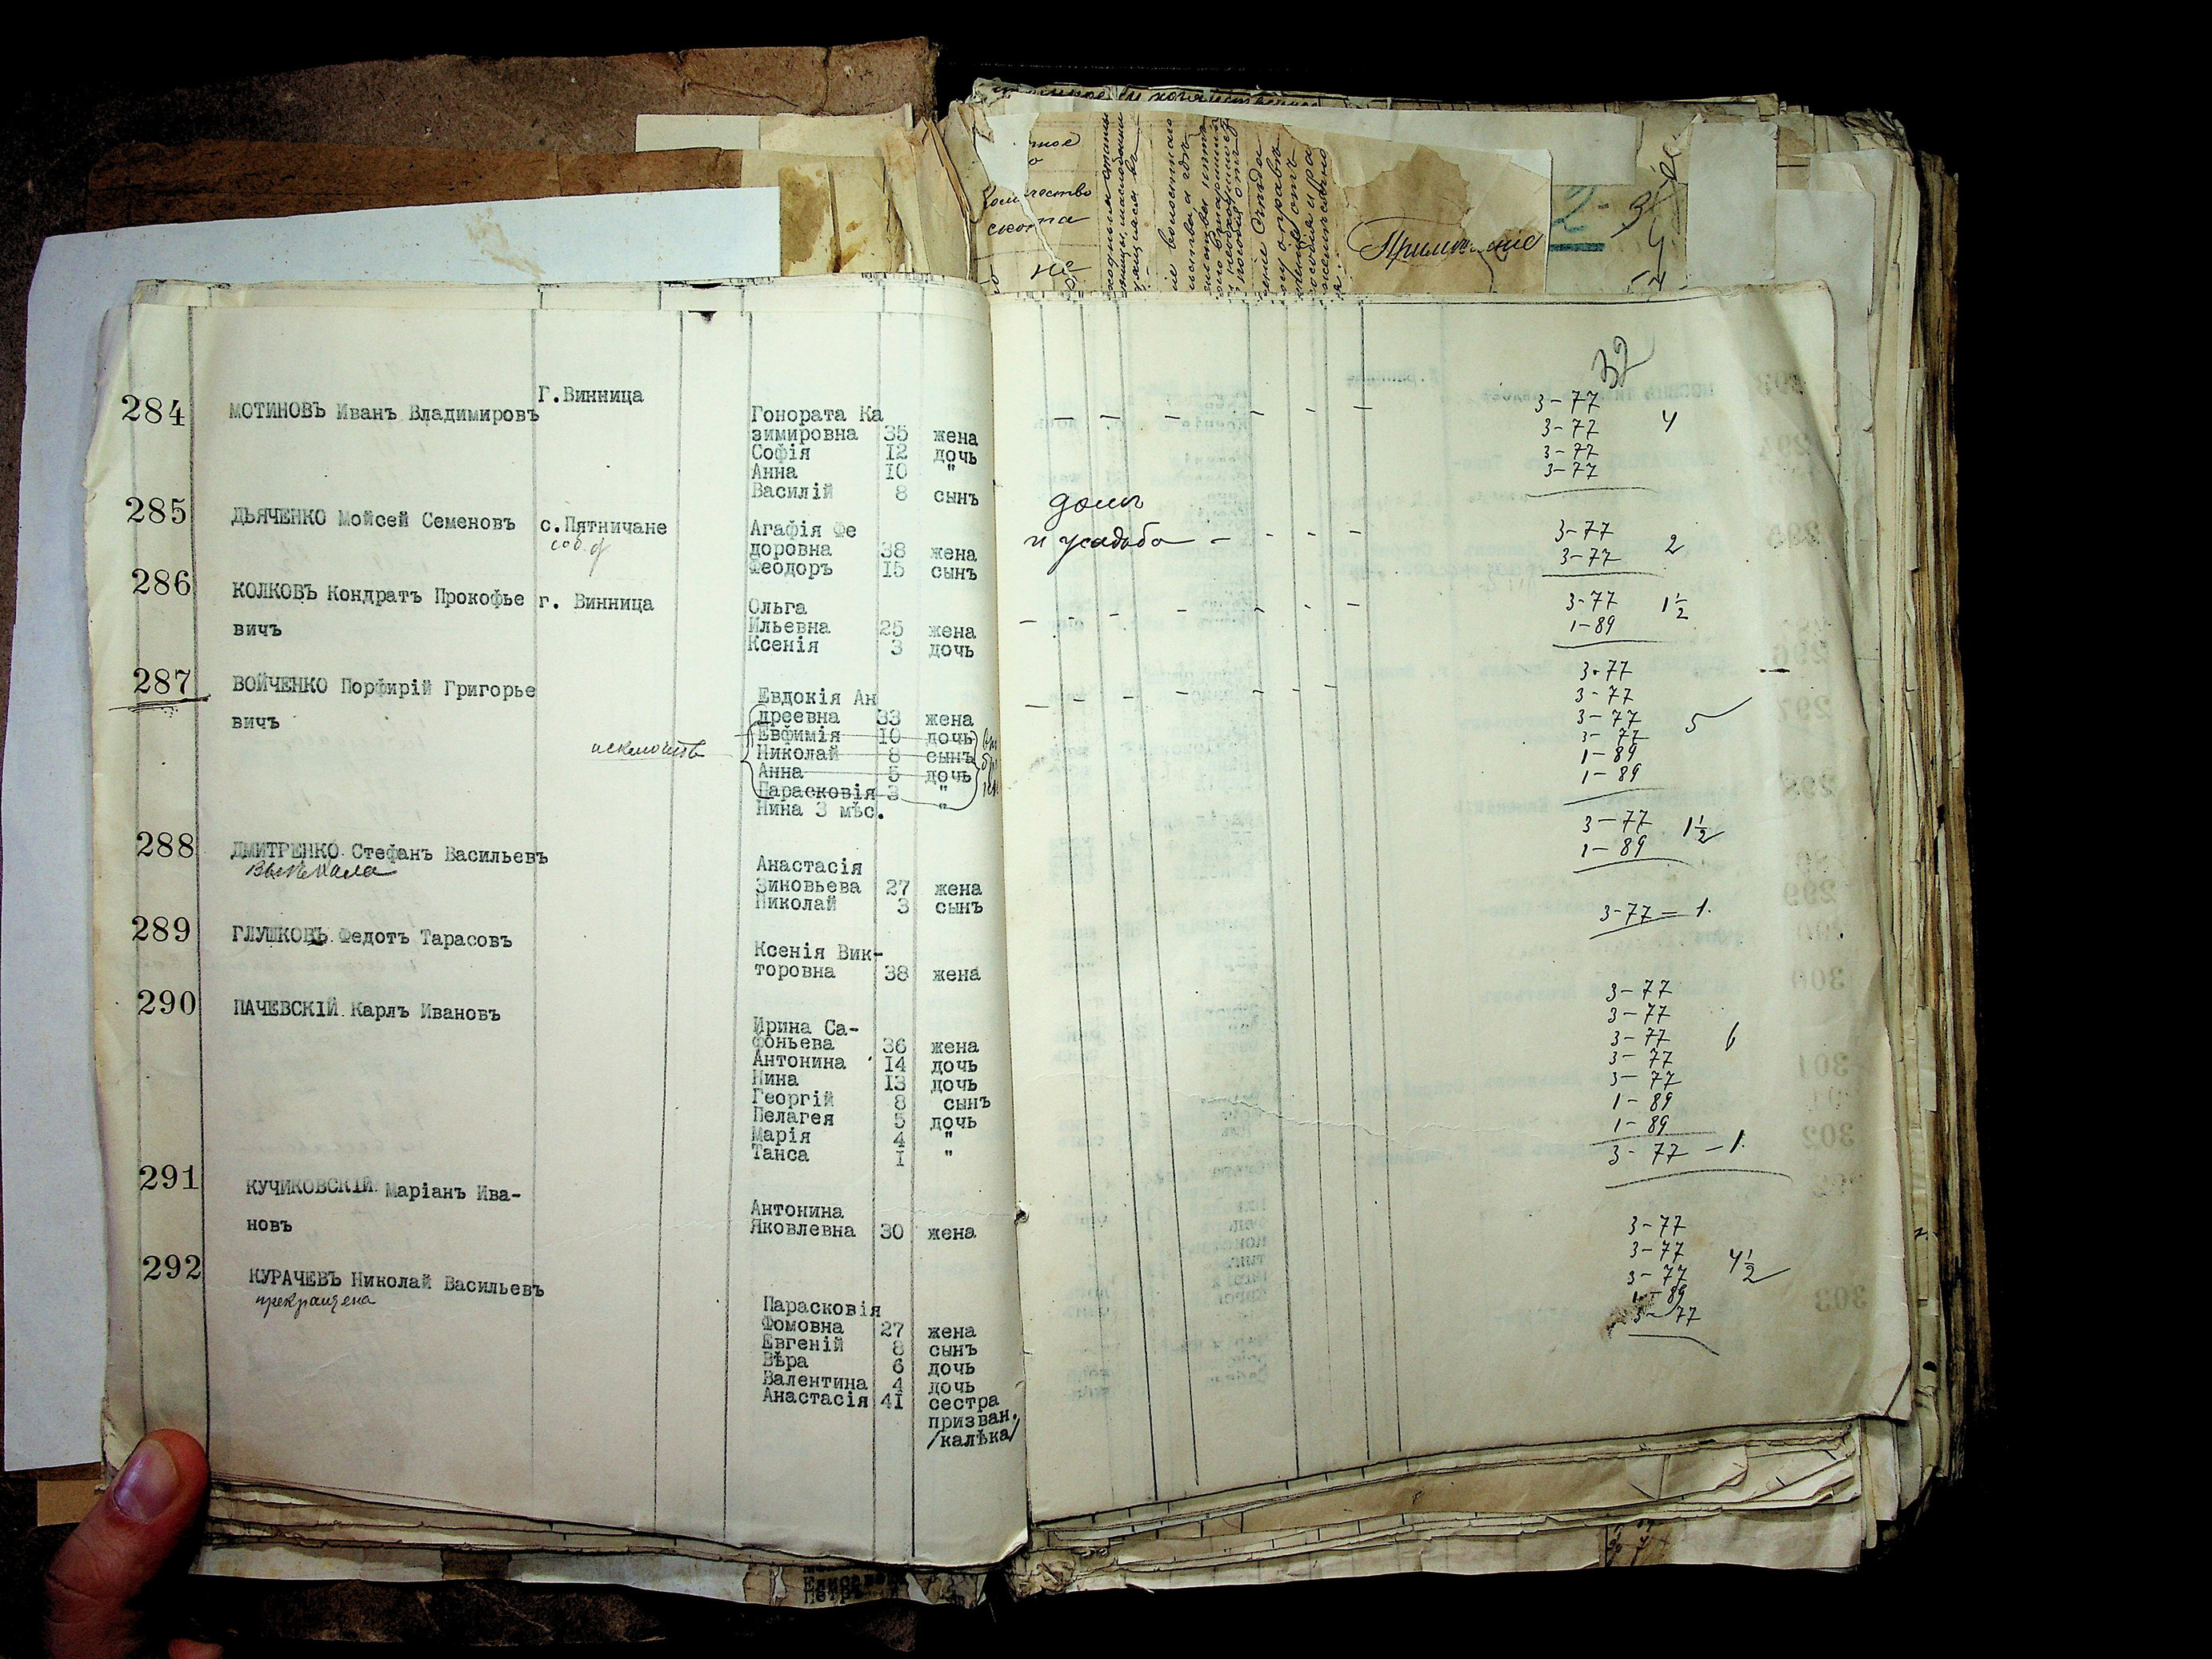 Количество
скота
не
Примечание
2-3
32
284 МОТИНОВЪ Иванъ Владимировъ Г.Винница
Гонората Ка
зимировна 35 жена
Софія 12 дочь
Анна 10 "
Василій 8 сынъ
3-77
3-77 4
3-77
3-77
285 ДЬЯЧЕНКО Мойсей Семеновъ с.Пятничане
Агафія Фе
доровна 38 жена
Феодоръ 15 сынъ
домъ
и усадьба - - - -
3-77
3-77 2
286 КОЛКОВЪ Кондратъ Прокофье г. Винница
вичъ
Ольга
Ильевна 25 жена
Ксенія 3 дочь
3-77 1½
1-89
287 ВОЙЧЕНКО Порфирій Григорье
вичъ
исключить
Евдокія Ан
дреевна 33 жена
Евфимія 10 дочь
Николай 8 сынъ
Анна 5 дочь
Парасковія 3 "
Нина 3 мѣс. "
3-77
3-77
3-77 5
3-77
1-89
1-89
288 ДМИТРЕНКО Стефанъ Васильевъ
выѣхала
Анастасія
Зиновьева 27 жена
Николай 3 сынъ
3-77 1½
1-89
289 ГЛУШКОВЪ Федотъ Тарасовъ
Ксенія Вик-
торовна 38 жена
3-77 = 1.
290 ПАЧЕВСКІЙ Карлъ Ивановъ
Ирина Са-
фоньева 36 жена
Антонина 14 дочь
Нина 13 дочь
Георгій 8 сынъ
Пелагея 5 дочь
Марія 4 "
Танса 1 "
3-77
3-77
3-77 6
3-77
3-77
1-89
1-89
291 КУЧИКОВСКІЙ Маріанъ Ива-
новъ
Антонина
Яковлевна 30 жена
3-77 - 1.
292 КУРАЧЕВЪ Николай Васильевъ
прекращена
Парасковія
Фомовна 27 жена
Евгеній 8 сынъ
Вѣра 6 дочь
Валентина 4 дочь
Анастасія 41 сестра
призван.
/калѣка/
3-77
3-77 4½
3-77
1-89
3-77